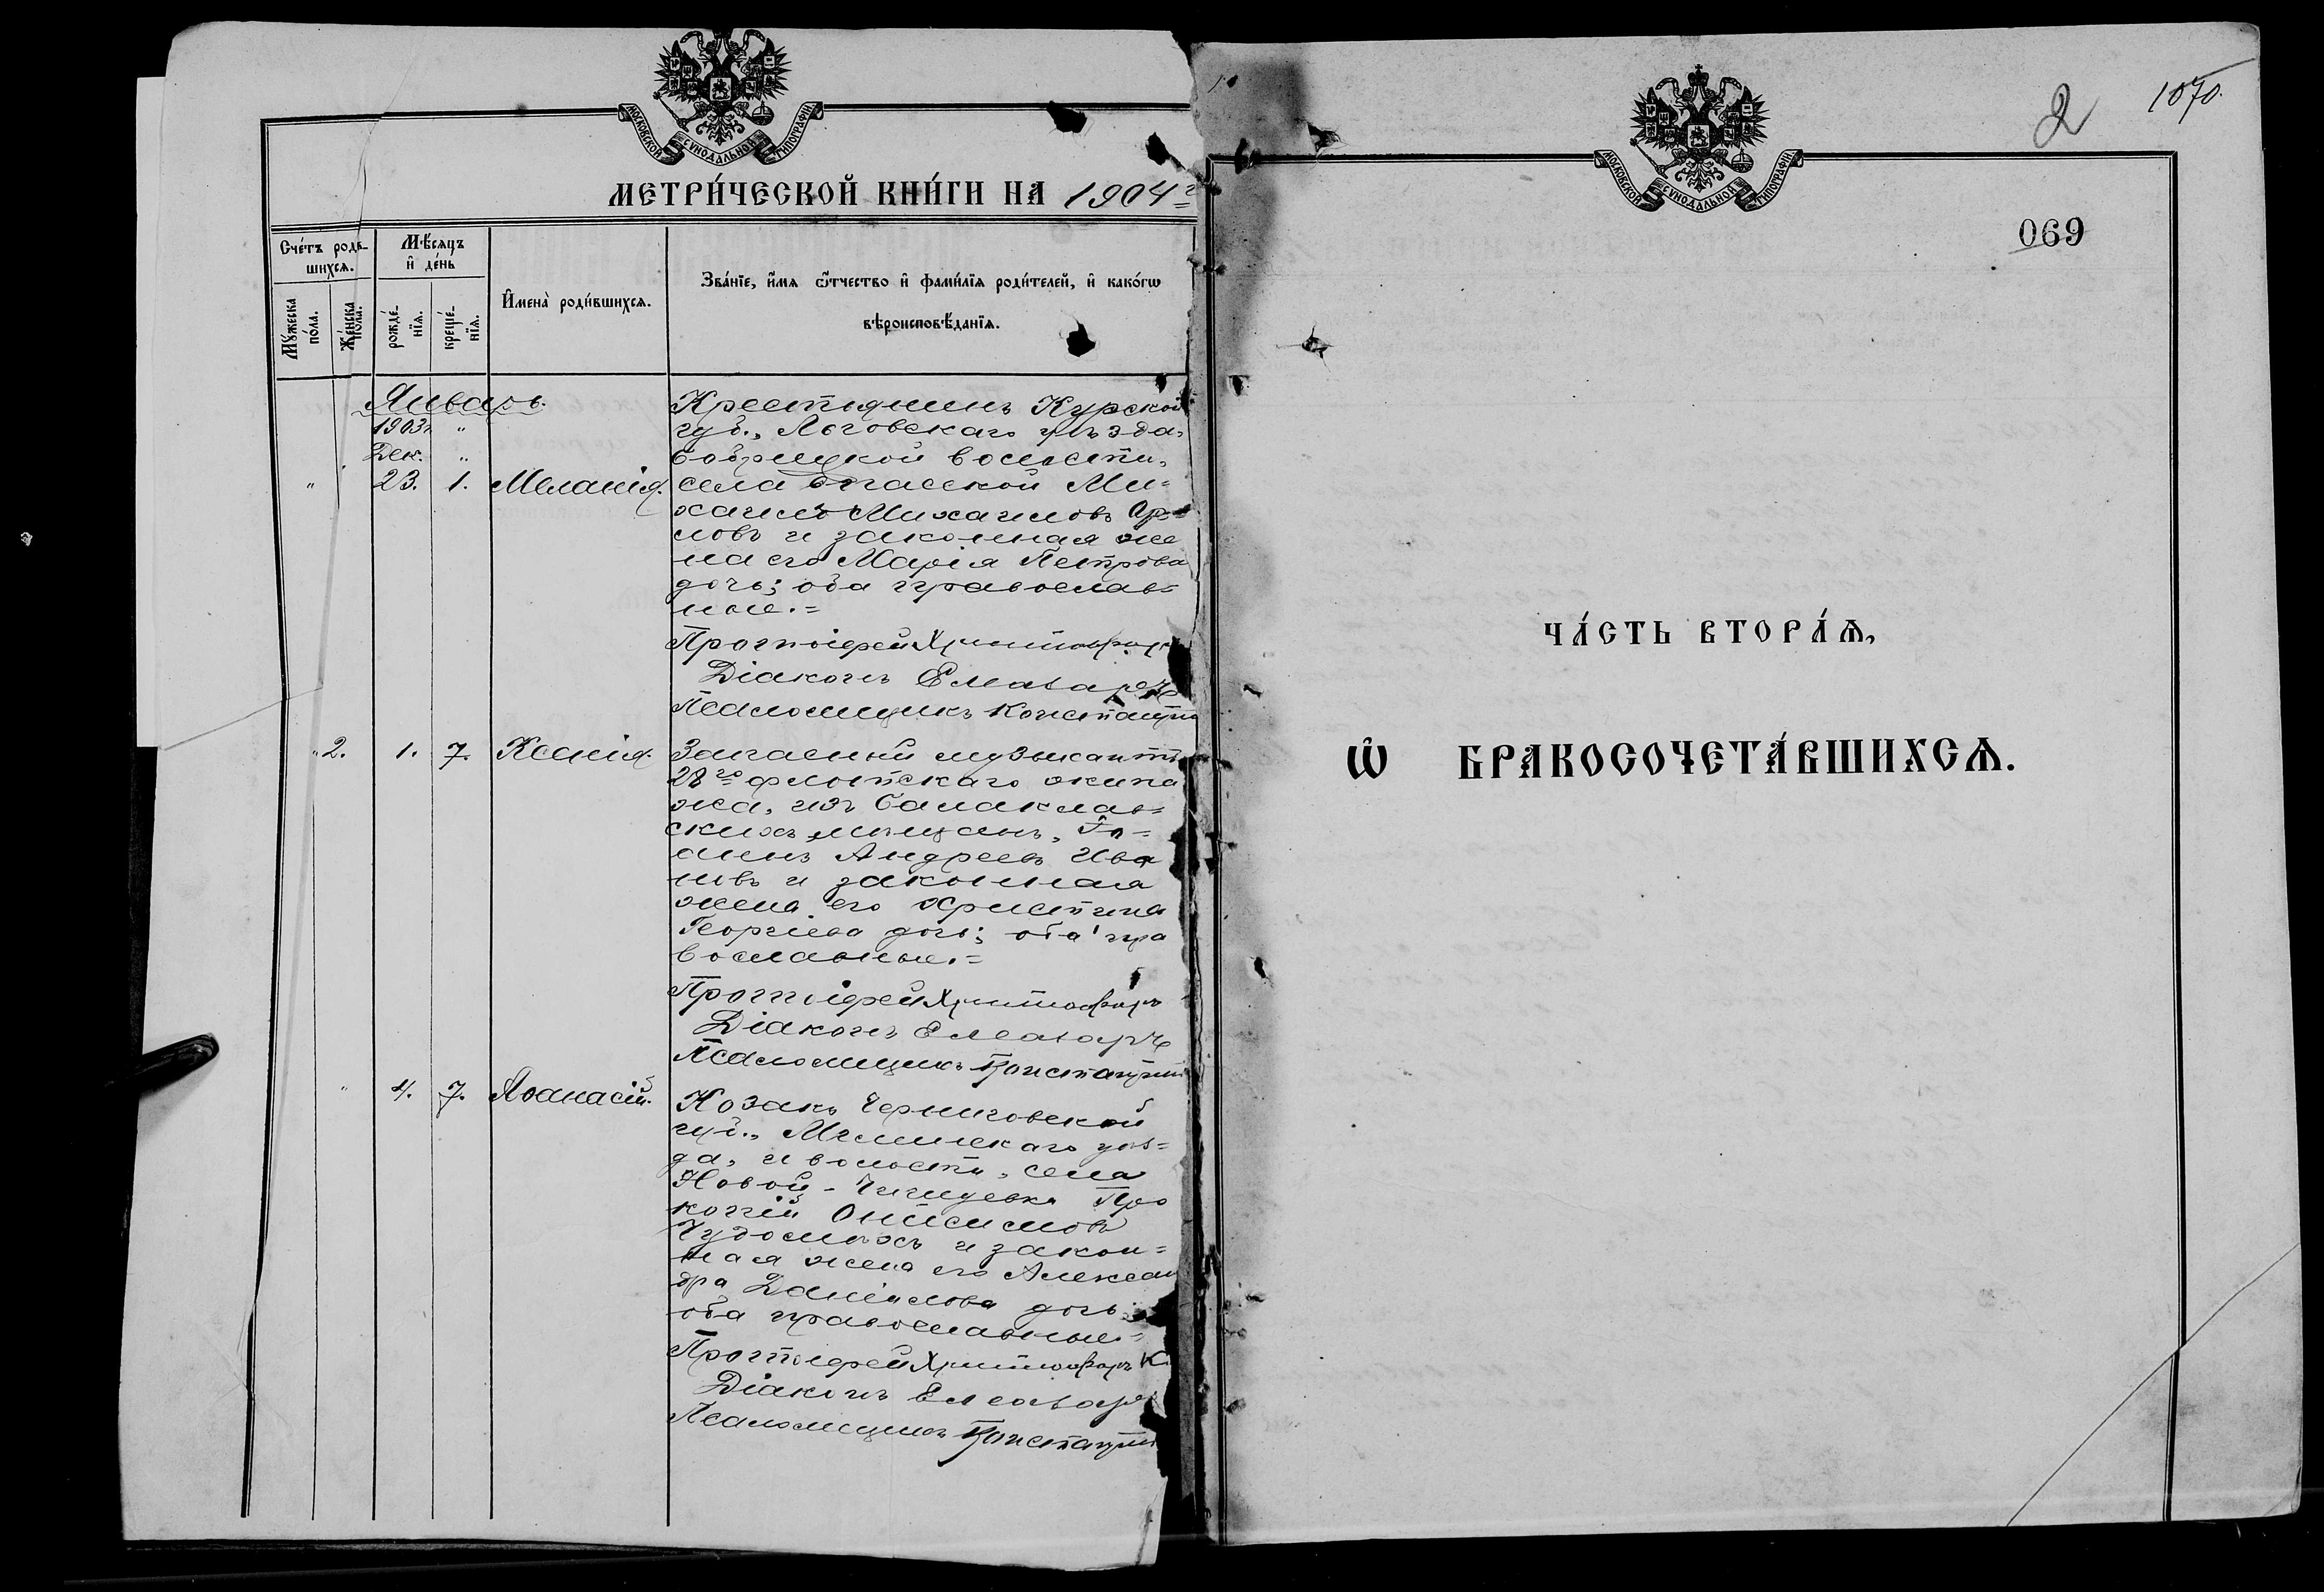 МОСКОВСКОЙ СѴНОДАЛЬНОЙ ТИПОГРАФІИ
МЕТРИ́ЧЕСКОЙ КНИ́ГИ НА 1904 г
Сче́тъ роди-
шихсѧ.
Мꙋ́жеска
по́ла.
Же́нска
по́ла.
Мѣ́сѧцъ
и҆ де́нь
рожде́-
нїѧ.
креще́-
нїѧ.
И҆мена̀ роди́вшихсѧ.
Зва́нїе, и҆́мѧ ѻ҆́тчество и҆ фами́лїѧ роди́телей, и҆ како́гѡ
вѣроисповѣ́данїѧ.
Январь.
1903 г. "
Дек. "
" 23. 1. Меланія.
Крестьянинъ Курской
губ., Льговскаго уѣзда,
Бобрицкой волости,
села Ми-
хаилъ Михаиловъ Ор-
ловъ и законная же
на его Марія Петрова
дочь; оба православ-
ные.=
Протоіерей Христофоръ
Діаконъ Елеазаръ
Псаломщикъ Констант
" 2. 1. 7. Ксенія.
Запасный музыкантъ
28го флотскаго экипа
жа, изъ балаклав-
скихъ мѣщанъ, Іо-
аннъ Андреевъ Ива
новъ и законная
жена его Христина
Георгіева дочь; оба пра
вославные.=
Протоіерей Христофоръ
Діаконъ Елеазаръ
Псаломщикъ Константин
" 4. 7. Аѳанасій.
Козакъ Черниговской
губ., Мглинскаго уѣз-
да, и волости, села
Новой- Про
копій Онисимовъ
и закон-
ная жена его Алексан
дра Даніилова дочь;
оба православные.=
Протоіерей Христофоръ К
Діаконъ Елеазаръ
Псаломщикъ Константин
2 1070.
МОСКОВСКОЙ СѴНОДАЛЬНОЙ ТИПОГРАФІИ
069
ЧА́СТЬ ВТОРА́Ѧ,
Ѡ҆ БРАКОСОЧЕТА́ВШИХСѦ.